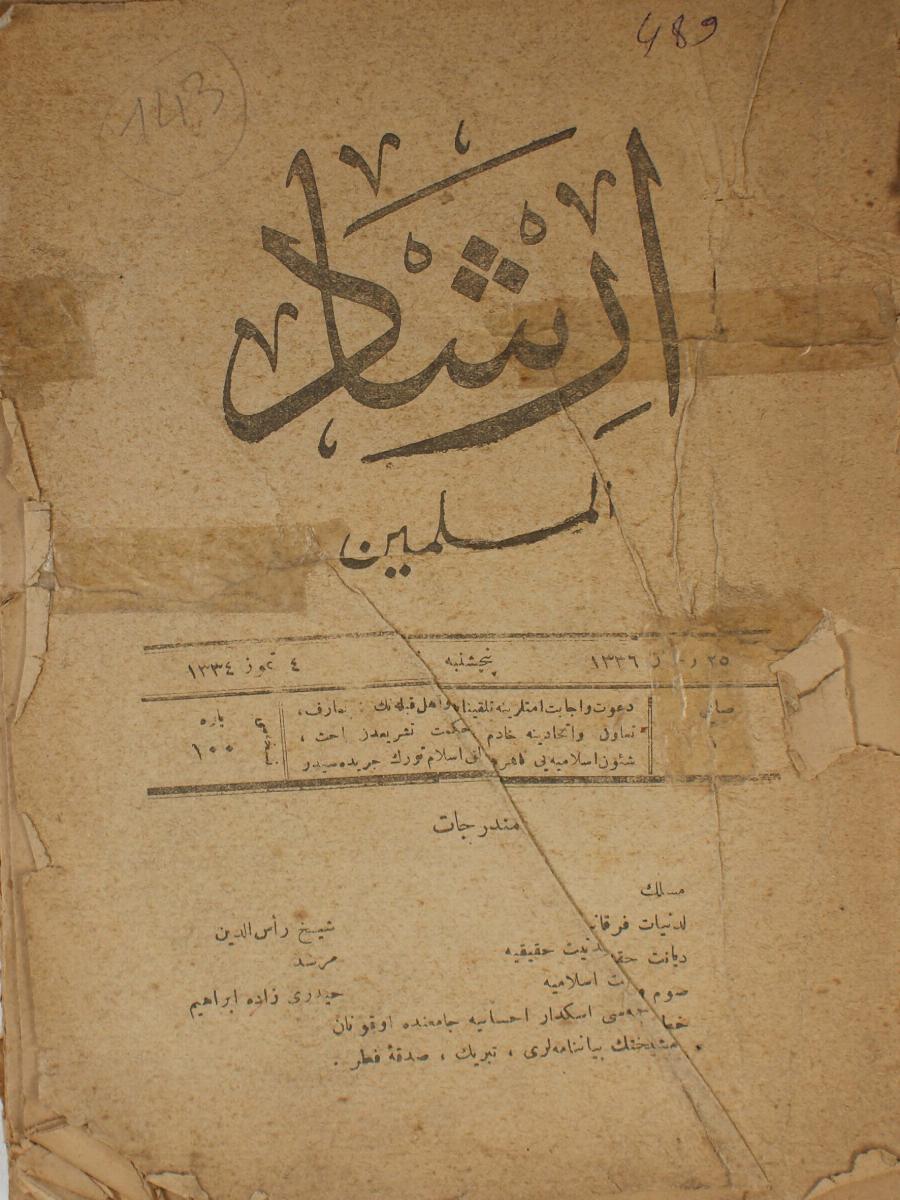 489
143
ارشاد
المسلمين
٢٥ ١٣٣٦ پنجشنبه ٤ تموز ١٣٣٤
دعوت واجابت امتلرينه تلقينات واهل قبله نك : تعارف،
تعاون واتحادينه خادم حكمت تشريعدن احث ،
شئون اسلاميه يى اسلام تورك جريده سيدر
صايى
١
نسخه سى
١٠٠ پاره
مندرجات
مسلك
لدنيات فرقانيه شيخ رأس الدين
ديانت مدنيت حقيقيه مرشد
صوم اسلاميه حيدرى زاده ابراهيم
اسكدار احسانيه جامعنده اوقونان
مشيختك بياننامه لرى ، تبريك ، صدقهٔ فطر .